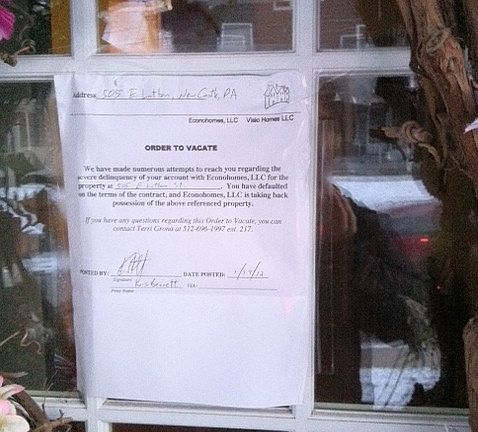 Address: 505 E Lutton, New Castle, PA
Econohomes, LLC Visio Homes LLC
ORDER TO VACATE
We have made numerous attempts to reach you regarding the
severe delinquency of your account with Econohomes, LLC for the
property at 505 E Lutton St. You have defaulted
on the terms of the contract, and Econohomes, LLC is taking back
possession of the above referenced property.
If you have any questions regarding this Order to Vacate, you can
contact Terri Grona at 512-696-1997 ext. 217.
POSTED BY: DATE POSTED: 1/19/12
Signature
Kris Bennett
Print Name